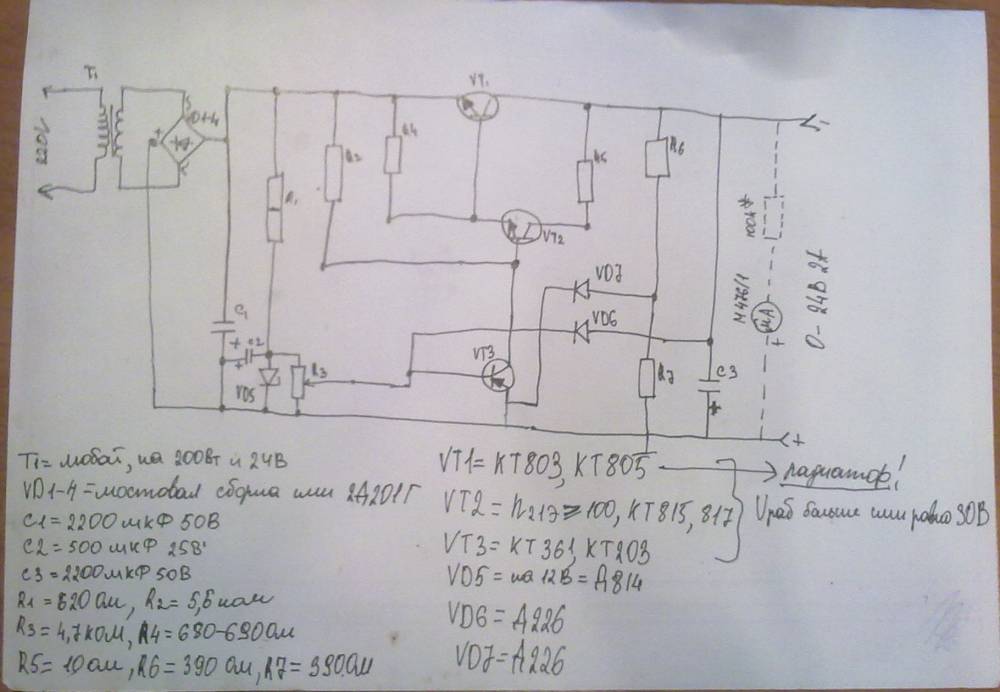 T1
220V
VD1-4
C1
+
R1
C2
+
VD5
R2
R3
R4
VT1
VT2
VT3
R5
R6
VD7
VD6
R7
C3
+
-
+
100k*
M476/1
mA
+
0-24В 2А
T1 = любой, на 200Вт и 24В
VD1-4 = мостовая сборка или 2Д201Г
C1 = 2200 мкФ 50В
C2 = 500 мкФ 25В
C3 = 2200 мкФ 50В
R1 = 820 Ом, R2 = 5,6 ком
R3 = 4,7 кОМ, R4 = 680-690 Ом
R5 = 10 ом, R6 = 390 Ом, R7 = 390 Ом
VT1 = КТ803, КТ805 → радиатор!
VT2 = h21Э ≥ 100, КТ815, 817
VT3 = КТ361, КТ203
Uраб больше или равно 30В
VD5 = на 12В = Д814
VD6 = Д226
VD7 = Д226